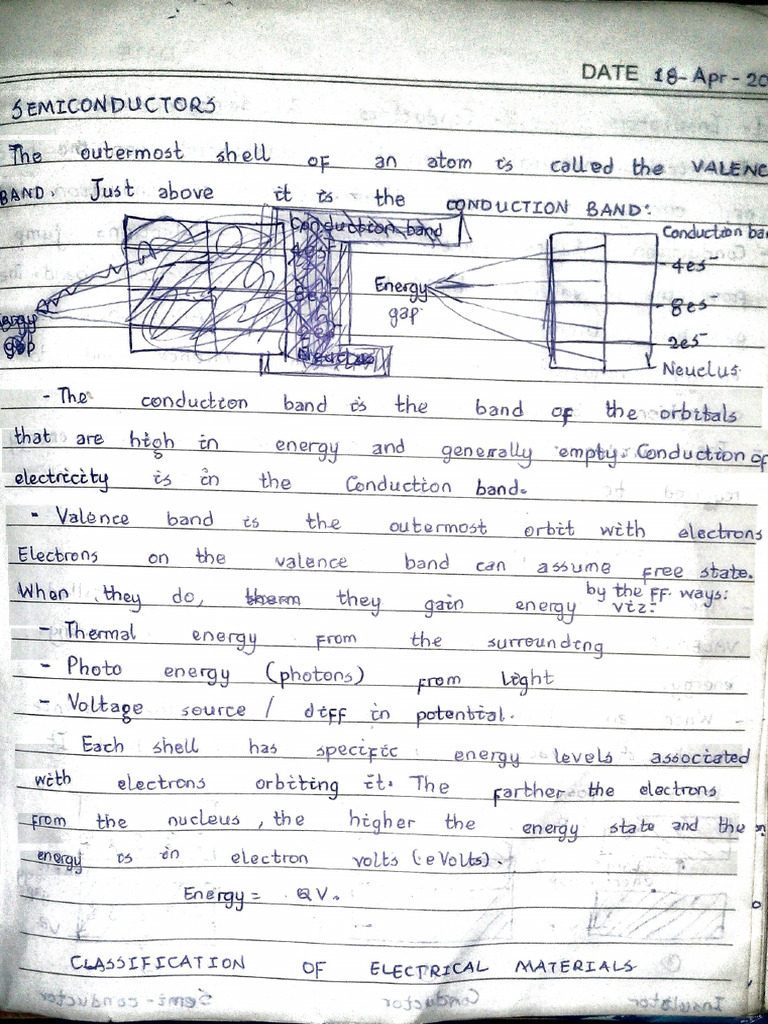 DATE 18-Apr-20
SEMICONDUCTORS
The outermost shell of an atom is called the VALENC
BAND. Just above it is the CONDUCTION BAND:
Conduction band
Conduction ba
4es-
Energy gap
8es-
2es-
Neuclus
Energy gap
Neuclus
- The conduction band is the band of the orbitals
that are high in energy and generally empty. Conduction of
electricity is in the Conduction band.
- Valence band is the outermost orbit with electrons
Electrons on the valence band can assume free state.
When they do, they gain energy by the ff. ways: viz:
- Thermal energy from the surrounding
- Photo energy (photons) from light
- Voltage source / diff in potential.
Each shell has specific energy levels associated
with electrons orbiting it. The farther the electrons
from the nucleus, the higher the energy state and the
energy is in electron volts (eVolts).
Energy = QV.
CLASSIFICATION OF ELECTRICAL MATERIALS